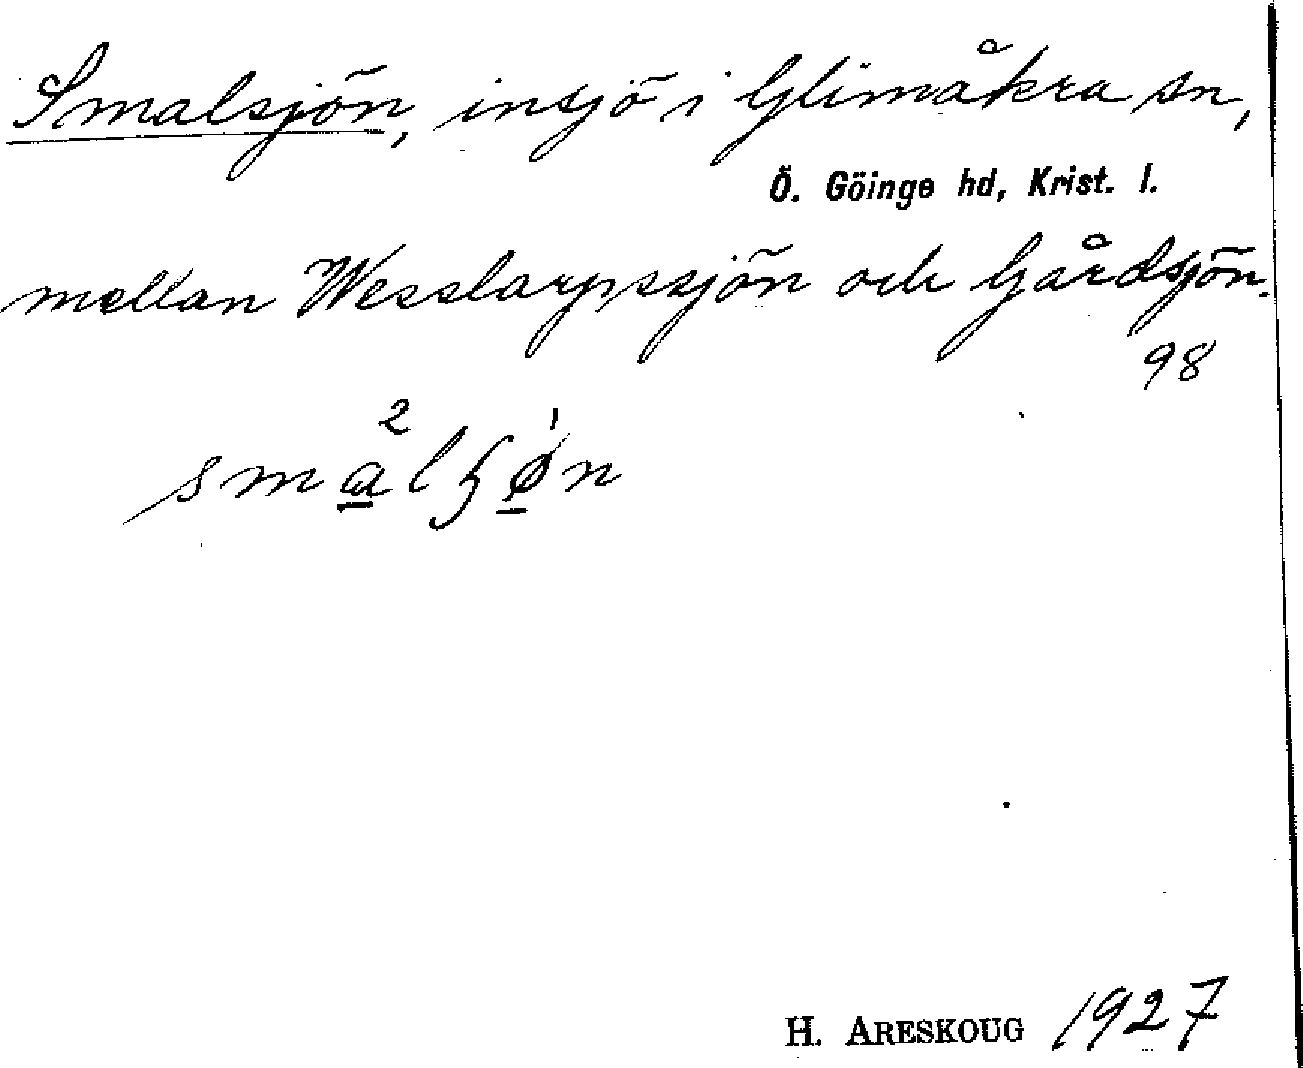 Smalsjön, insjö i Glimåkra sn,
Ö. Göinge hd, Krist. l.
mellan Wesslarpssjön och Gårdsjön.
98
H. ARESKOUG 1927